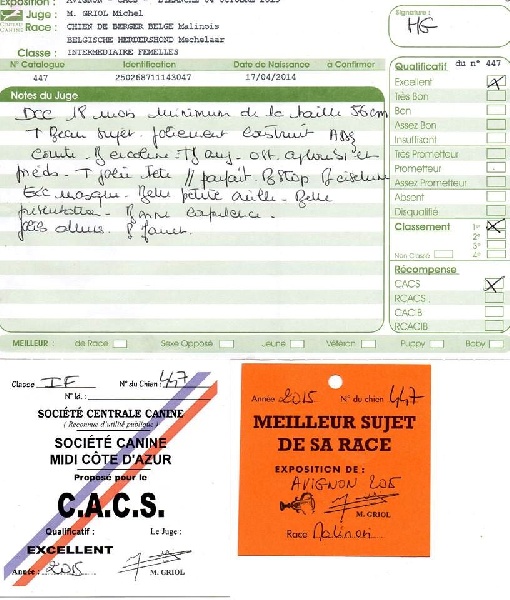 Exposition : AVIGNON - CACS - DIMANCHE 04 OCTOBRE 2015
Juge : M. GRIOL Michel
Race : CHIEN DE BERGER BELGE Malinois
BELGISCHE HERDERSHOND Mechelaar
Classe : INTERMEDIAIRE FEMELLES
Signature :
N° Catalogue Identification Date de Naissance à Confirmer
447 250268711143047 17/04/2014
Notes du Juge
18 mois minimum de la taille 56 cm
T Beau sujet joliment construit
T jolie tete // parfait. B Stop
Exc masque. Belle petite oreille. Belle
présentation.
Qualificatif du n° 447
Excellent
Très Bon
Bon
Assez Bon
Insuffisant
Très Prometteur
Prometteur
Assez Prometteur
Absent
Disqualifié
Classement 1e
2e
3e
Non Classé 4e
Récompense
CACS
RCACS
CACIB
RCACIB
MEILLEUR : de Race Sexe Opposé Jeune Vétéran Puppy Baby
Classe IF N° du Chien : 447
N° Id. :
SOCIÉTÉ CENTRALE CANINE
( Reconnue d'utilité publique )
SOCIÉTÉ CANINE
MIDI CÔTE D'AZUR
Proposé pour le
C.A.C.S.
Qualificatif : Le Juge :
EXCELLENT
Année : 2015 M. GRIOL
Année 2015 N° du chien 447
MEILLEUR SUJET
DE SA RACE
EXPOSITION DE :
AVIGNON 2015
M. GRIOL
Race Malinois